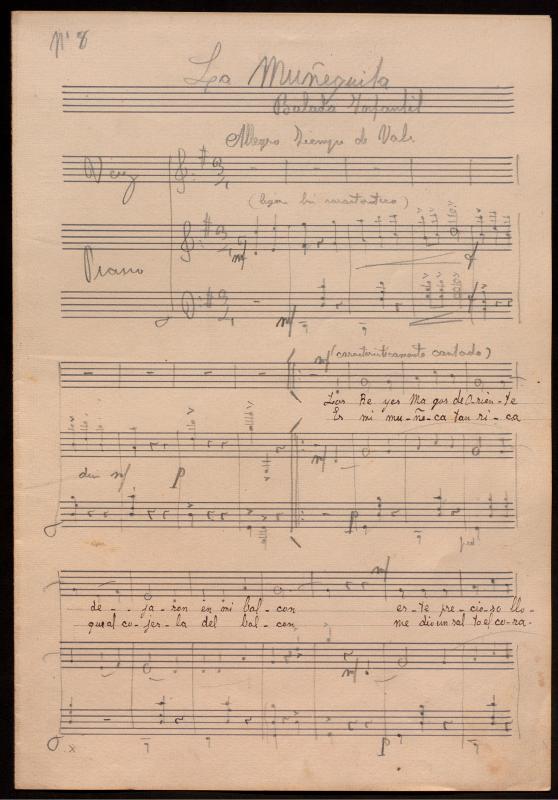 Nº 8
La Muñequita
Balada Infantil
Allegro Tiempo de Vals
Voz
(ligado bien caracteristico)
Piano
mf
mf
mf (caracteristicamente cantado)
Los Re yes Ma gos de O-rien-te
Es mi mu-ñe-ca tan ri-ca
dim mf p
mf
p
mf
de - - ja-ron en mi bal-con es-te pre-cio-so llo-
que al co-jer-la del bal-con me dio un sal to el co-ra-
mf
p